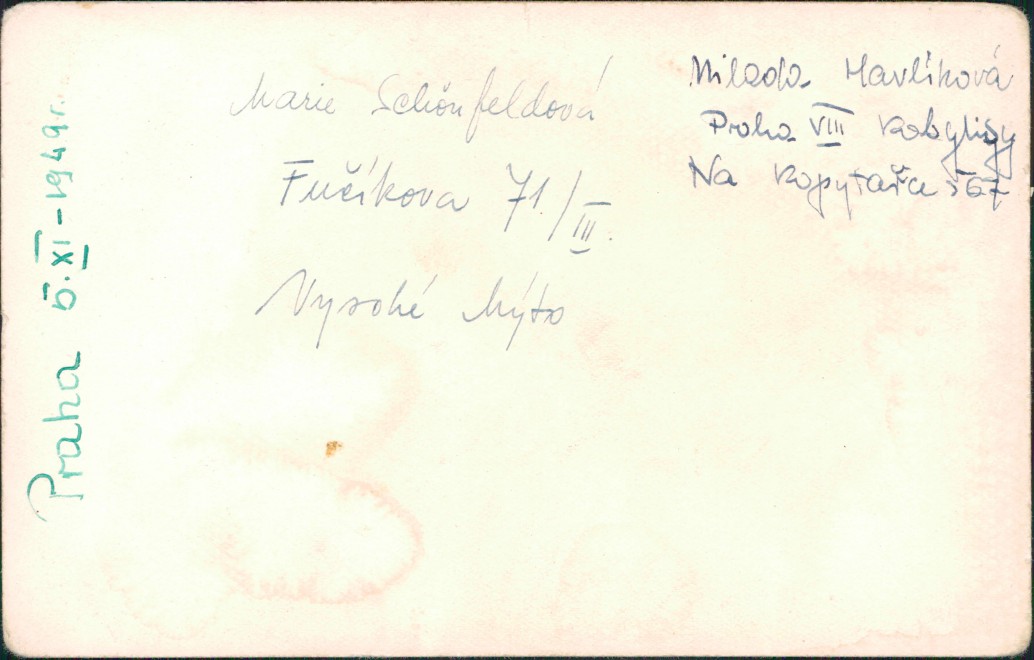 Praha 5.XI-1949r.
Marie Schönfeldová
Fučíkova 71./III.
Vysoké Mýto
Milada Havlíková
Praha VIII Kobylisy
Na Kopytářce 567